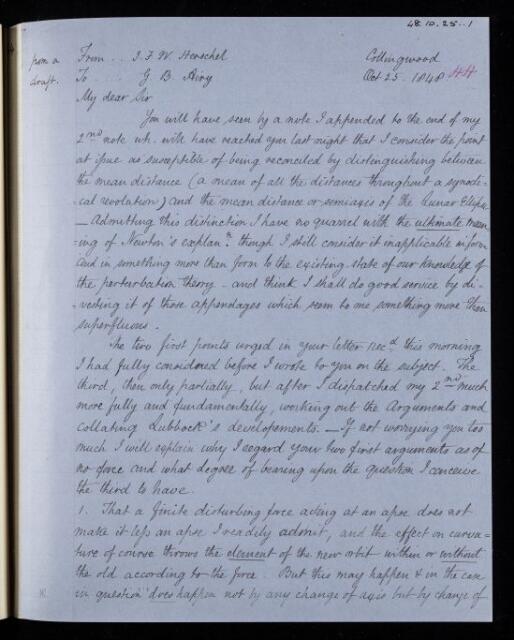 48.10.25..1
from a From... J F W Herschel Collingwood
draft. To.... G B Airy Oct 25. 1848 HH
My dear Sir
You will have seen by a note I appended to the end of my
2nd note wh. will have reached you last night that I consider the point
at issue as susceptible of being reconciled by distinguishing between
the mean distance (a mean of all the distances throughout a synodi-
-cal revolution) and the mean distance or semiaxis of the Lunar Ellipse
— Admitting this distinction I have no quarrel with the ultimate mean
ing of Newton's explann. though I still consider it inapplicable in form
and in something more than form to the existing state of our knowledge of
the perturbation theory - and think I shall do good service by di-
-vesting it of those appendages which seem to me something more then
superfluous.
The two first points urged in your letter recd this morning
I had fully considered before I wrote to you on the subject. The
third, then only partially, but after I dispatched my 2nd much
more fully and fundamentally, working out the Arguments and
collating Lubbock's developements. — If not worrying you too
much I will explain why I regard your two first arguments as of
no force and what degree of bearing upon the question I conceive
the third to have.
1. That a finite disturbing force acting at an apse does not
make it less an apse I readily admit, and the effect on curva-
-ture of course throws the element of the new orbit within or without
the old according to the force. But this may happen & in the case
in question does happen not by any change of axis but by change of